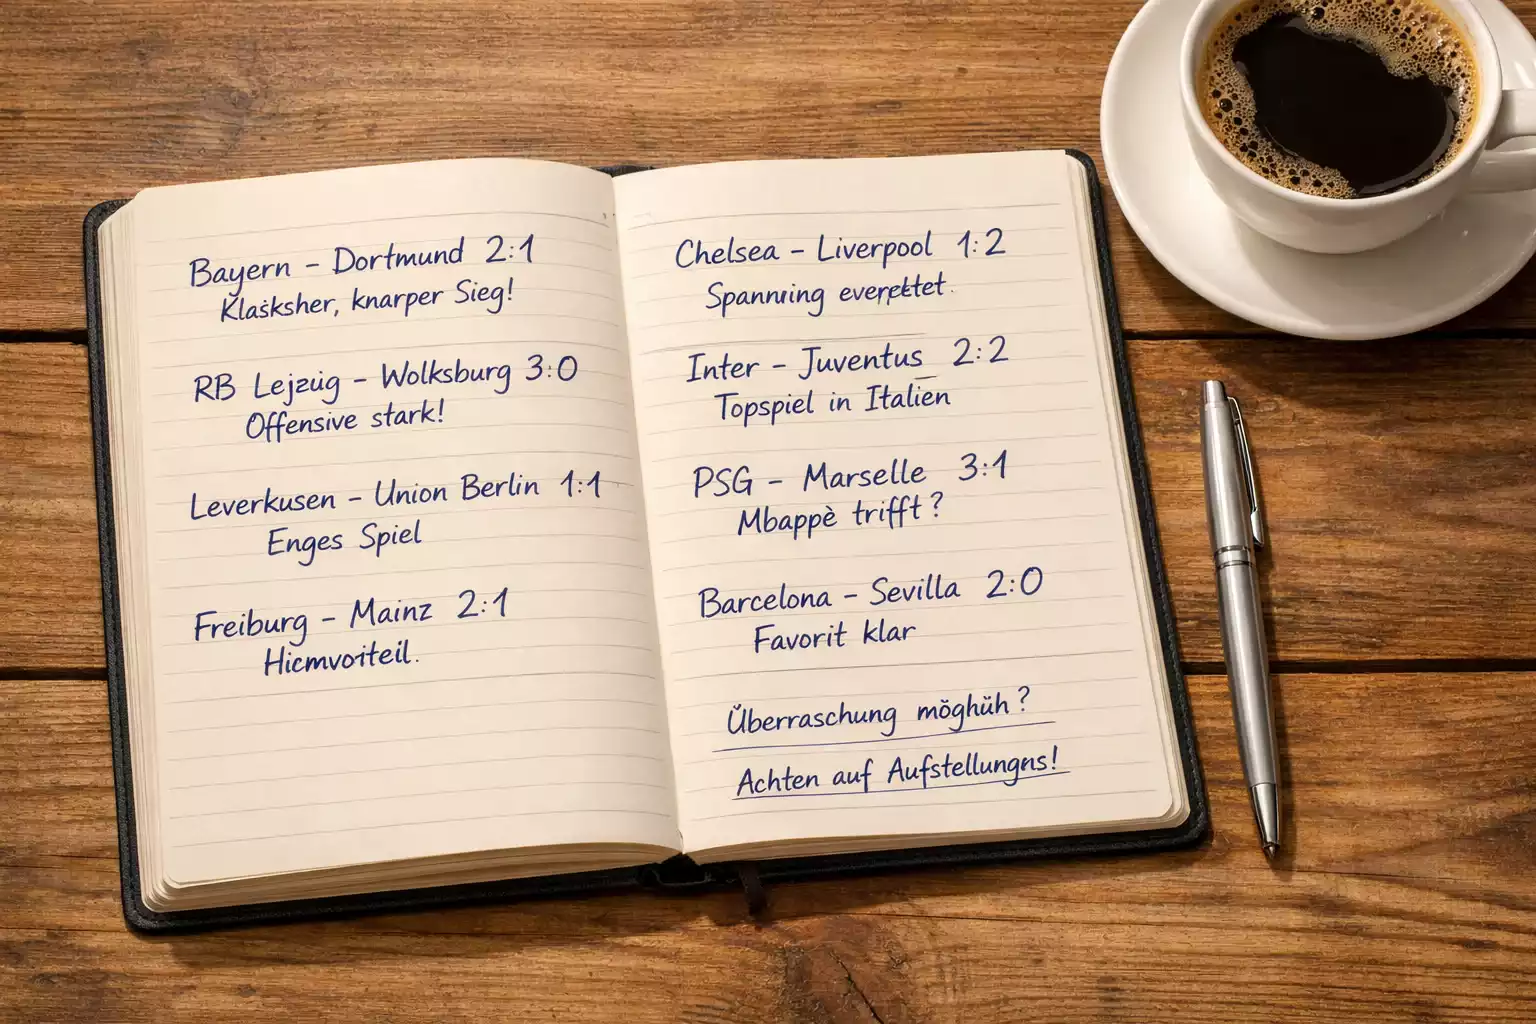 Bayern – Dortmund 2:1
Klaśksher, knarper Sieg!
RB Lejzüg – Wolksburg 3:0
Offensive stark!
Leverkusen – Union Berlin 1:1
Enges Spiel
Freiburg – Mainz 2:1
Hicmvoiteil.
Chelsea – Liverpool 1:2
Spanning
Inter – Juventus 2:2
Topspiel in Italien
PSG – Marselle 3:1
Mbappè trifft?
Barcelona – Sevilla 2:0
Favorit klar
Überraschung möghüh?
Achten auf Aufstellungns!